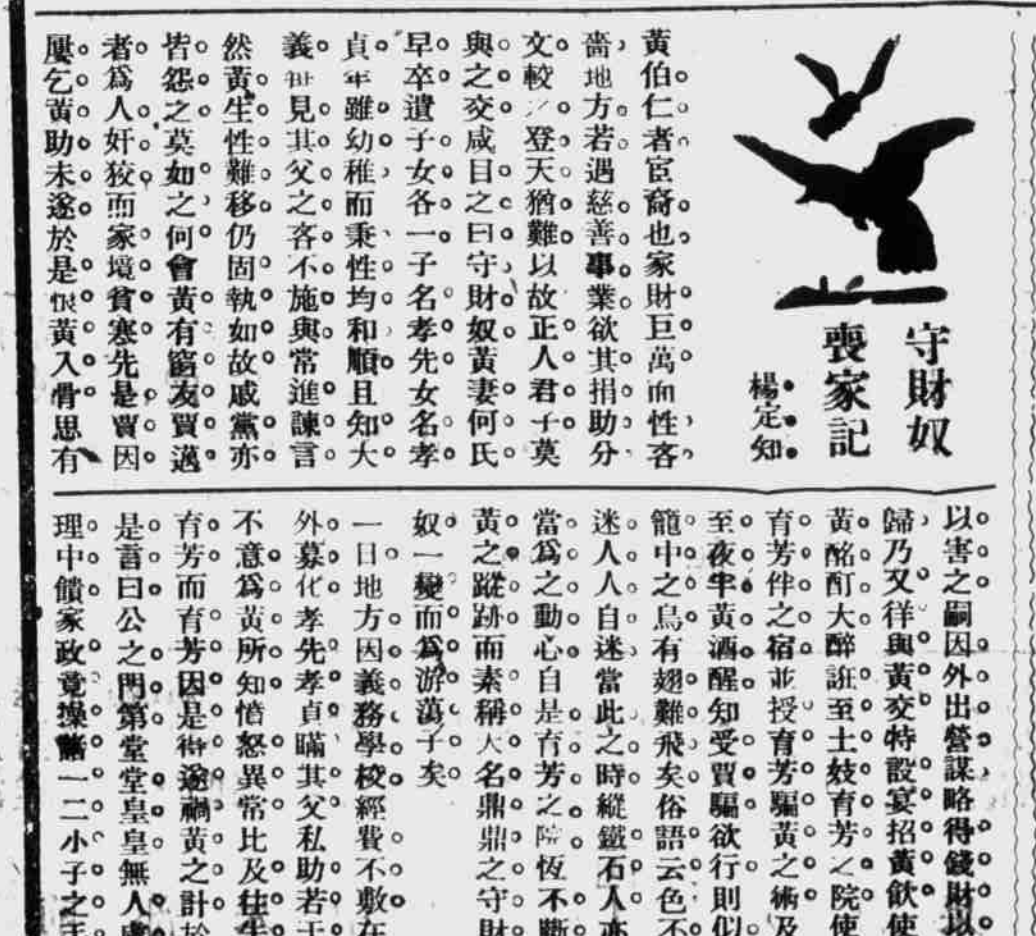 守財奴
喪家記
楊定知
黃伯仁者宦裔也家財巨萬而性吝
嗇地方若遇慈善事業欲其捐助分
文較之登天猶難以故正人君子莫
與之交咸目之曰守財奴黃妻何氏
早卒遺子女各一子名孝先女名孝
貞年雖幼稚而秉性均和順且知大
義每見其父之吝不施與常進諫言
然黃生性難移仍固執如故戚黨亦
皆怨之莫如之何會黃有窮友賈邁
者爲人奸狡而家境貧寒先是賈因
屢乞黃助未遂於是恨黃入骨思有
以害之嗣因外出營謀略得錢財以
歸乃又徉與黃交特設宴招黃飲使
黃酩酊大醉誑至土妓育芳之院使
育芳伴之宿並授育芳騙黃之術及
至夜半黃酒醒知受賈騙欲行則似
籠中之鳥有翅難飛矣俗語云色不
迷人人自迷當此之時縱鐵石人亦
當爲之動心自是育芳之院恆不斷
黃之蹤跡而素稱大名鼎鼎之守財
奴一變而爲游蕩子矣
一日地方因義務學校經費不敷在
外募化孝先孝貞瞞其父私助若干
不意爲黃所知憤怒異常比及往
育芳而育芳因是得遂禍黃之計於
是言曰公之門第堂堂皇皇無人
理中饋家政竟操諸一二小子之手